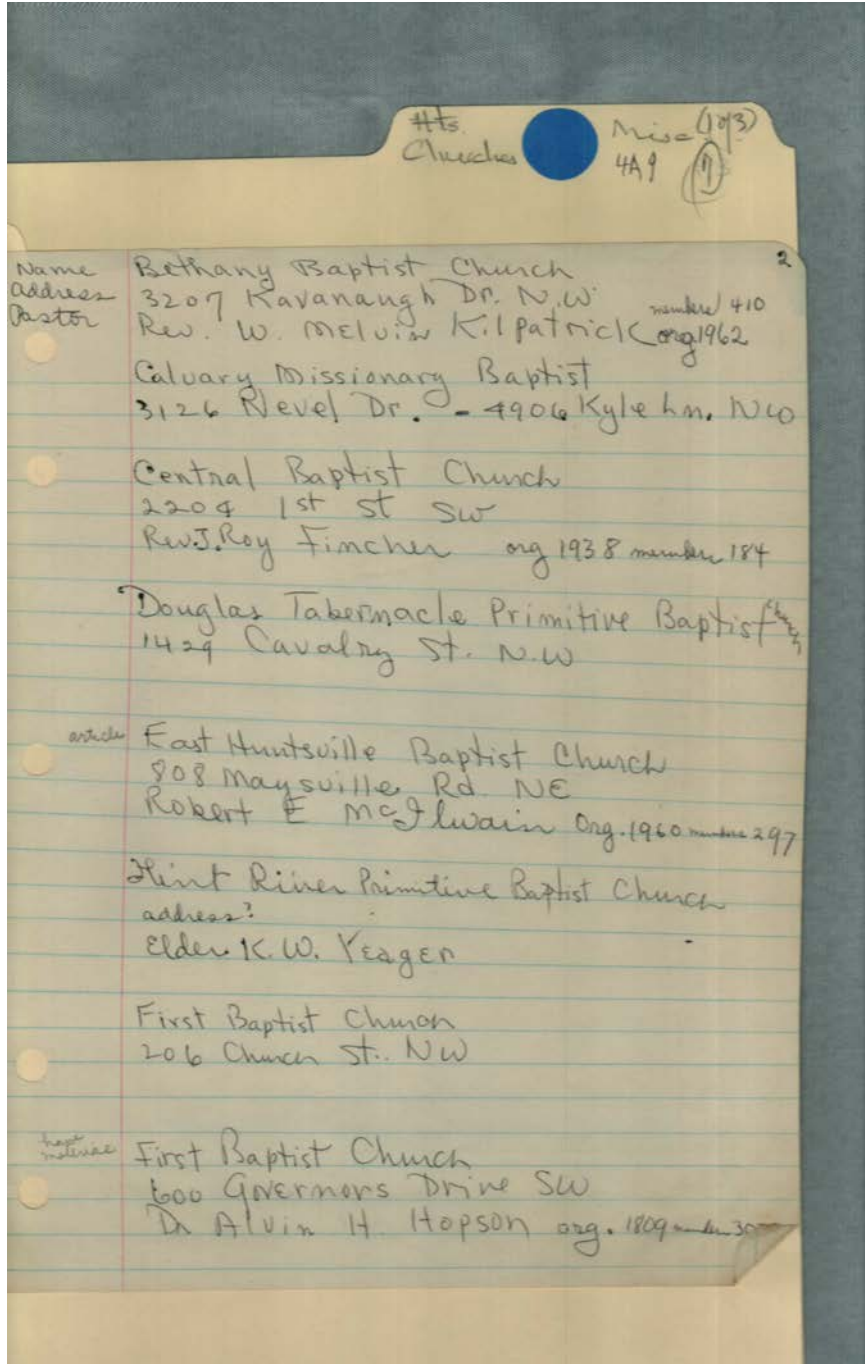 Hts. Misc (1 of 3)
Churches 4A9 (7)
2
Name Bethany Baptist Church
address 3207 Kavanaugh Dr. N.W. members 410
Pastor Rev. W. Melvin Kilpatrick org 1962
Calvary Missionary Baptist
3126 Nevel Dr. - 4906 Kyle Ln. NW
Central Baptist Church
2204 1st St SW
Rev. J. Roy Fincher org 1938 members 184
Douglas Tabernacle Primitive Baptist Church
1429 Cavalry St. N.W
article East Huntsville Baptist Church
808 Maysville Rd. NE
Robert E McIlwain Org. 1960 members 297
Flint River Primitive Baptist Church
address?
Elder K.W. Yeager
First Baptist Church
206 Church St. NW
have material First Baptist Church
600 Governors Drive SW
Dr Alvin H. Hopson org. 1809 members